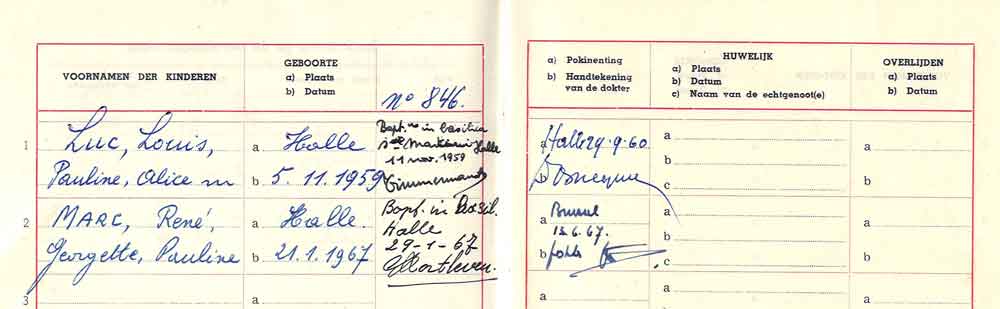 VOORNAMEN DER KINDEREN
GEBOORTE
a) Plaats
b) Datum
No 846.
a) Pokinenting
b) Handtekening
van de dokter
HUWELIJK
a) Plaats
b) Datum
c) Naam van de echtgenoot(e)
OVERLIJDEN
a) Plaats
b) Datum
1
Luc, Louis,
Pauline, Alice
a Halle
b 5.11.1959
Bapt. in basilica
Halle
11 nov. 1959
a Halle 29.9.60
b
a
b
c
a
b
2
MARC, René,
Georgette, Pauline
a Halle.
b 21.1.1967
Bapt. in Basil.
Halle
29-1-67
a Brussel
13.6.67.
b
a
b
c
a
b
3
a
a
a
a